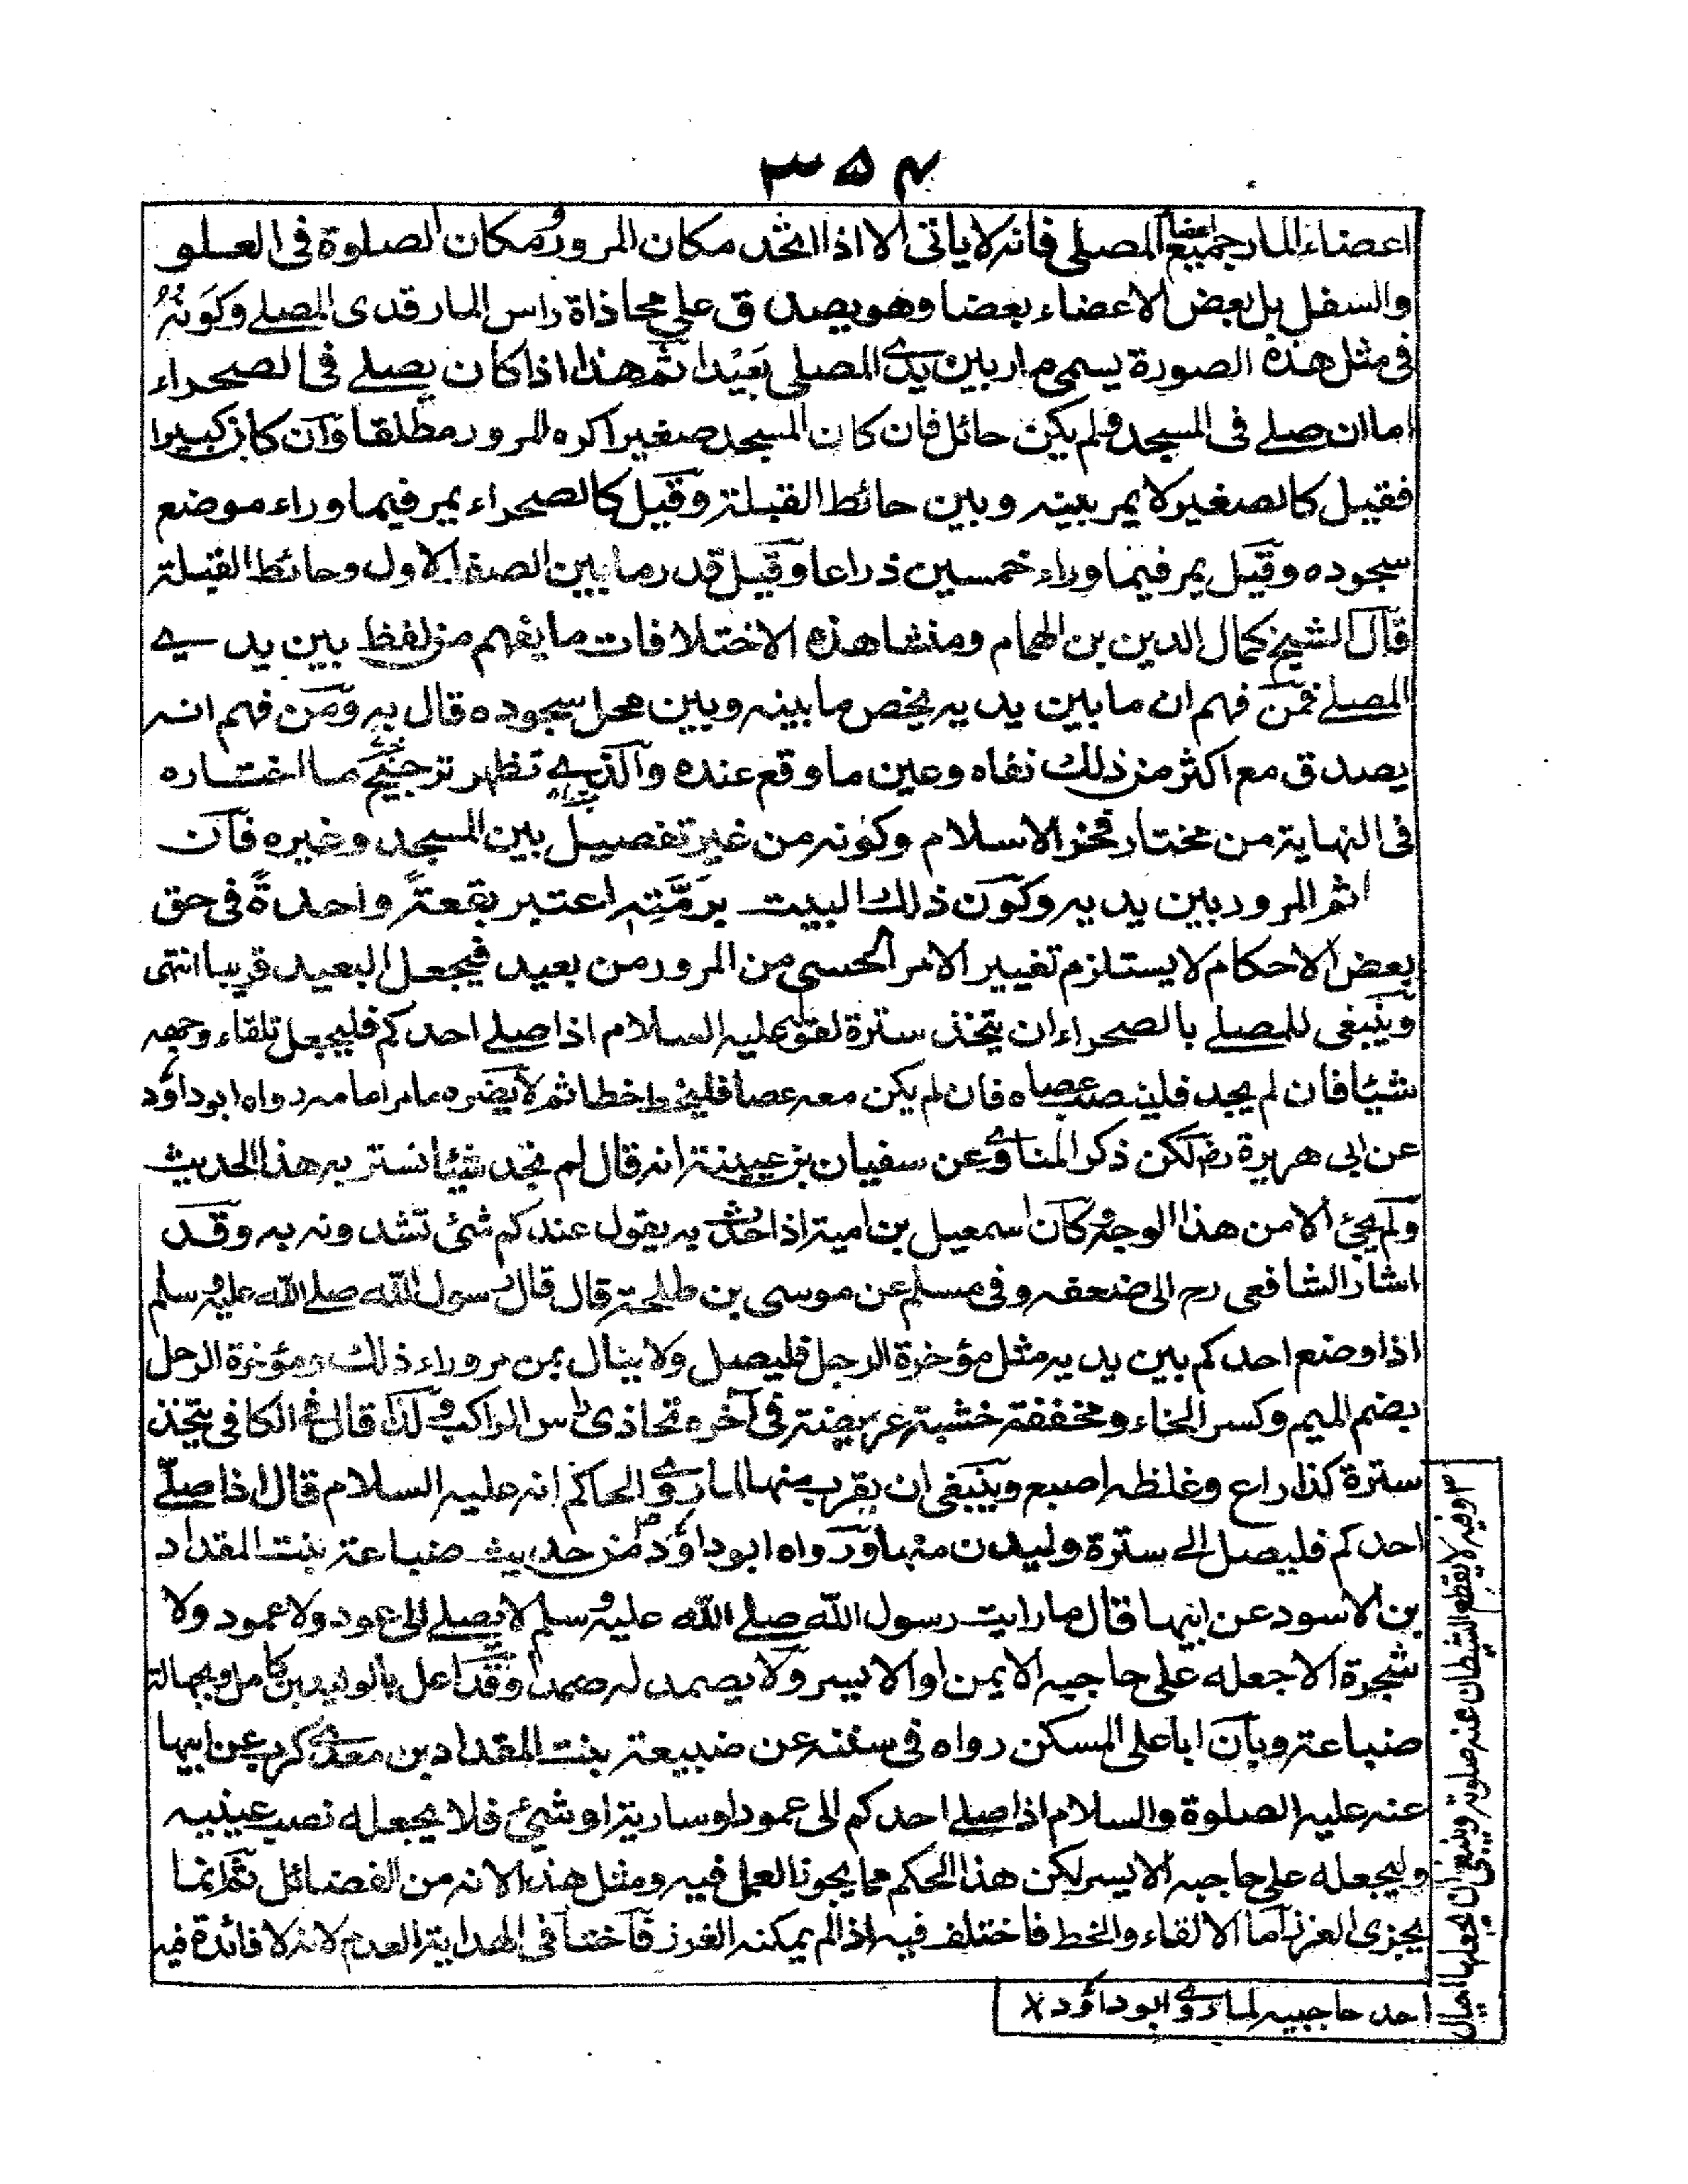 ٣٥٤
اعضاء المار جميع اعضاء المصلى فانه لا ياتى الا اذا اتحد مكان المرور ومكان الصلوة فى العلو
والسفل بل بعض الاعضاء بعضا وهو يصدق على محاذاة راس المار قدمى المصلے وكونه
فى مثل هذه الصورة يسمى مارا بين يدى المصلى بعيد اثم هذا اذا كان يصلے فى الصحراء
اما ان صلے فى المسجد ولم يكن حائل فان كان المسجد صغيرا كره المرور مطلقا وان كان كبيرا
فقيل كالصغير لا يمر بينه وبين حائط القبلة وقيل كالصحراء يمر فيما وراء موضع
سجوده وقيل يمر فيما وراء خمسين ذراعا وقيل قدر ما بين الصف الاول وحائط القبلة
قال الشيخ كمال الدين بن الهمام ومنشا هذه الاختلافات ما يفهم من لفظ بين يدے
المصلے فمن فهم ان ما بين يديه يخص ما بينه وبين محل سجوده قال به ومن فهم انه
يصدق مع اكثر من ذلك نفاه وعين ما وقع عنده والذے تظهر ترجيح ما اختاره
فى النهاية من مختار فخر الاسلام وكونه من غير تفصيل بين المسجد وغيره فان
اثم المرور بين يديه وكون ذلك البيت برمته اعتبر بقعة واحدة فى حق
بعض الاحكام لا يستلزم تغيير الامر الحسى من المرور من بعيد فيجعل البعيد قريبا انتهى
وينبغى للمصلے بالصحراء ان يتخذ سترة لقوله عليه السلام اذا صلے احدكم فليجعل تلقاء وجهه
شيئا فان لم يجد فلينصب عصاه فان لم يكن معه عصا فليخط خطا ثم لا يضره ما مر امامه رواه ابو داؤد
عن ابى هريرة رض لكن ذكر المناوے عن سفيان بن عيينة انه قال لم نجد شيئا نستر به هذا الحديث
ولم يجئ الا من هذا الوجه وكان اسمعيل بن امية اذا حدث به يقول عندكم شئ تشدونه به وقد
اشار الشافعى رح الى ضعفه وفى مسلم عن موسى بن طلحة قال قال رسول الله صلے الله عليه وسلم
اذا وضع احدكم بين يديه مثل مؤخرة الرحل فليصل ولا يبال بمن مر وراء ذلك ومؤخرة الرحل
بضم الميم وكسر الخاء ومخففة خشبة عريضة فى آخره تحاذى راس الراكب وكذا قال فى الكافى يتخذ
سترة كذراع وغلظه اصبع وينبغى ان يقرب منها لما روے الحاكم انه عليه السلام قال اذا صلے
احدكم فليصل الے سترة وليدن منها ورواه ابو داؤد من حديث ضباعة بنت المقداد
بن الاسود عن ابيها قال ما رايت رسول الله صلے الله عليه وسلم لا يصلے الى عود ولا عمود ولا
شجرة الا جعله على حاجبه الايمن او الايسر ولا يصمد له صمدا وقد اعل بالوليد بن كامل وبجهالة
ضباعة وبان ابا على المسكن رواه فى سننه عن ضبيعة بنت المقداد بن معدے كرب عن ابيها
عنه عليه الصلوة والسلام اذا صلے احدكم الى عمود او سارية او شئ فلا يجعله نصب عينيه
وليجعله على حاجبه الايسر لكن هذا الحكم مما يجوز العمل فيه ومثل هذا لانه من الفضائل ثم انما
يجزى الغرز اما الالقاء والخط فاختلف فيه اذا لم يمكنه الغرز فاختا فى الهداية العدم لانه لا فائدة فيه
وفيه لا يقطع الشيطان عنه صلوته وينبغى ان يجعلها احيال
احد حاجبيه لما روے ابو داؤد